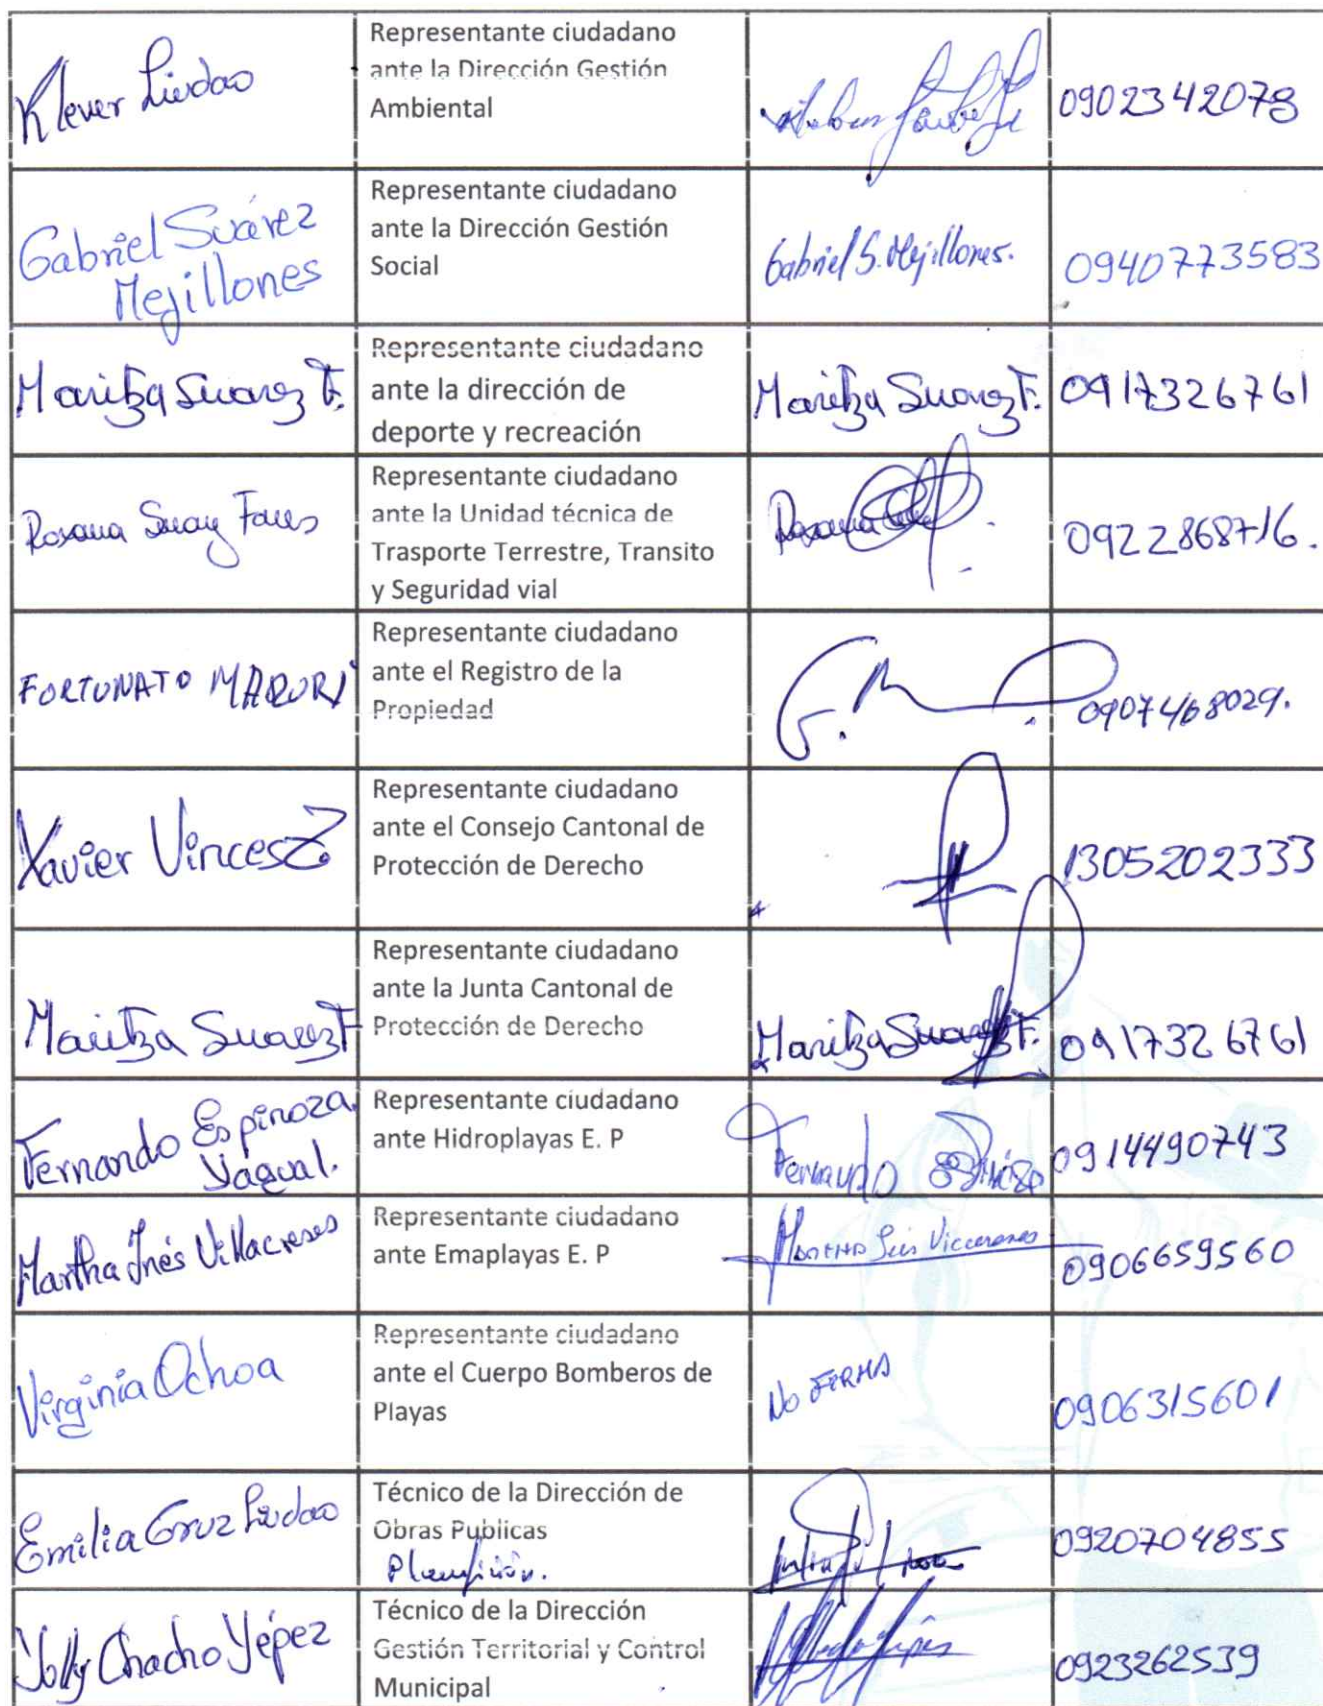 Klever Lindao
Representante ciudadano
ante la Dirección Gestión
Ambiental
0902342078
Gabriel Suárez
Mejillones
Representante ciudadano
ante la Dirección Gestión
Social
Gabriel S. Mejillones.
0940773583
Maritza Suarez F.
Representante ciudadano
ante la dirección de
deporte y recreación
Maritza Suarez F.
0917326761
Roxana
Representante ciudadano
ante la Unidad técnica de
Trasporte Terrestre, Transito
y Seguridad vial
Roxana
0922868716.
FORTUNATO MARURI
Representante ciudadano
ante el Registro de la
Propiedad
0907468029.
Xavier Vinces Z.
Representante ciudadano
ante el Consejo Cantonal de
Protección de Derecho
1305202333
Maritza Suarez F
Representante ciudadano
ante la Junta Cantonal de
Protección de Derecho
Maritza Suarez F.
0917326761
Fernando Espinoza
Yagual.
Representante ciudadano
ante Hidroplayas E. P
Fernando
0914490743
Martha Inés Villacreses
Representante ciudadano
ante Emaplayas E. P
0906659560
Virginia Ochoa
Representante ciudadano
ante el Cuerpo Bomberos de
Playas
No FIRMA
0906315601
Emilia Cruz Lindao
Técnico de la Dirección de
Obras Publicas
0920704855
Yolly Chacho Yépez
Técnico de la Dirección
Gestión Territorial y Control
Municipal
0923262539